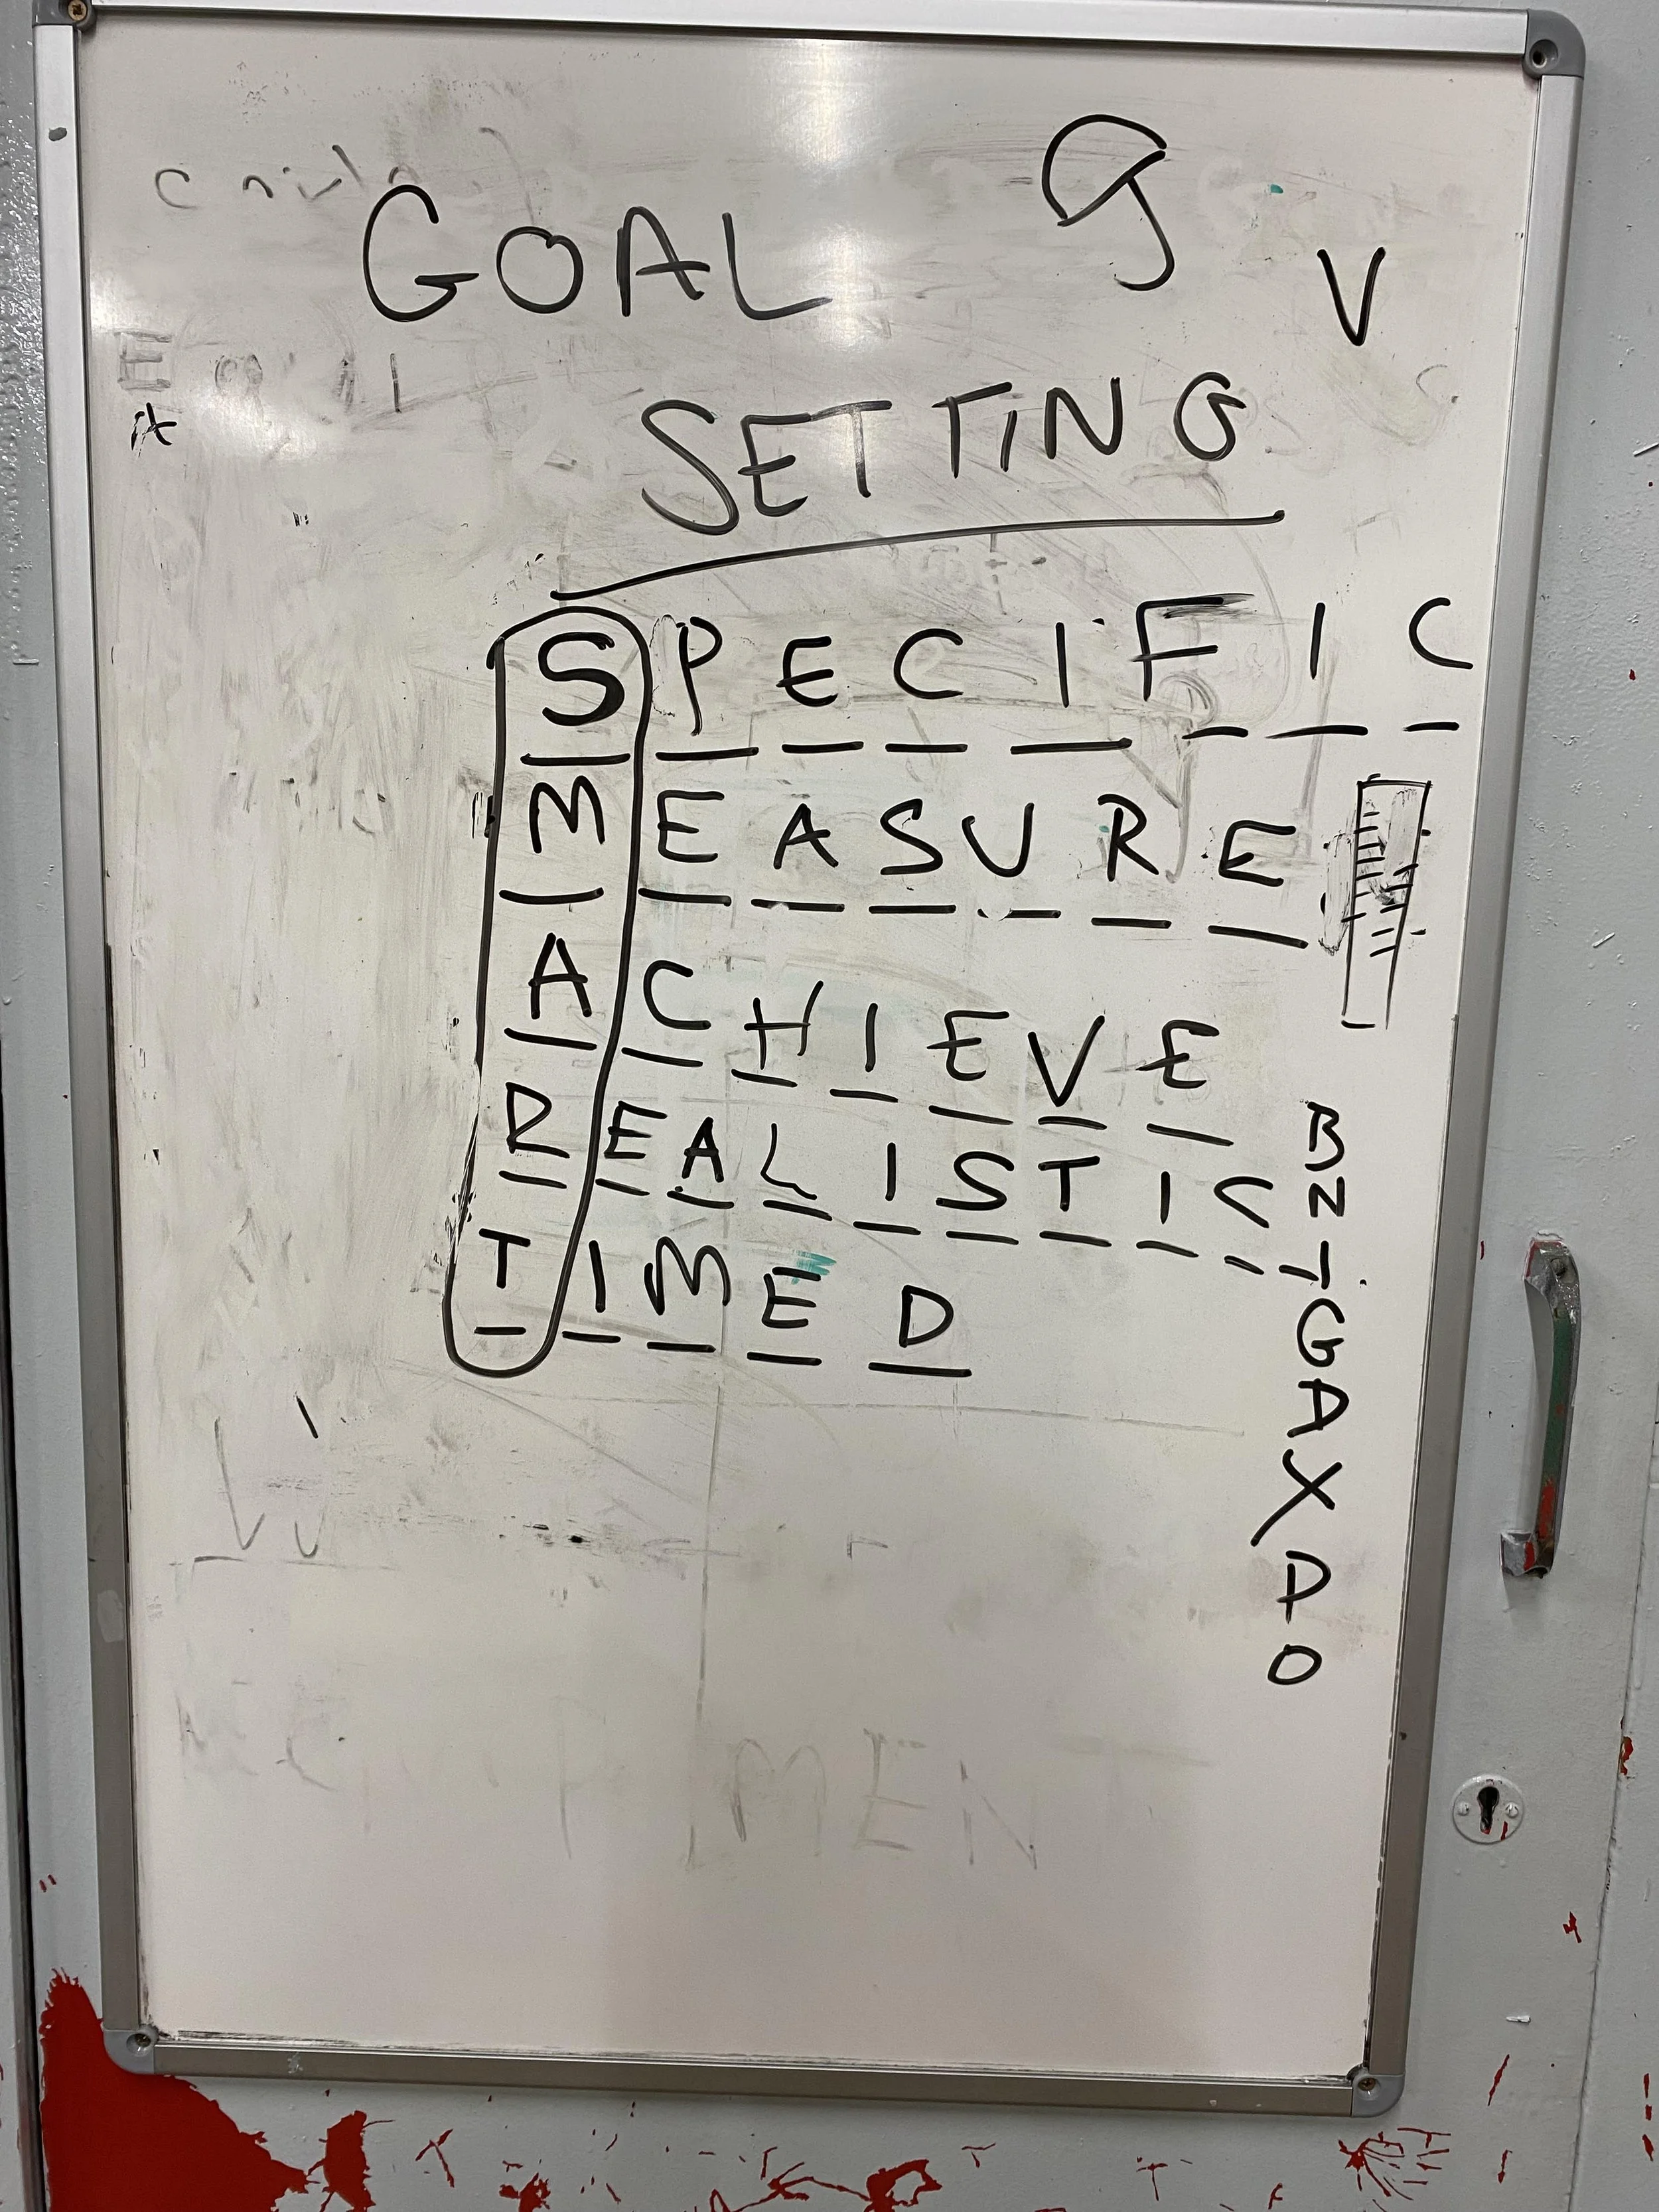 GOAL
V
SETTING
SPECIFIC
MEASURE
ACHIEVE
REALISTIC
TIMED
B
N
I
G
A
X
P
O
MENT